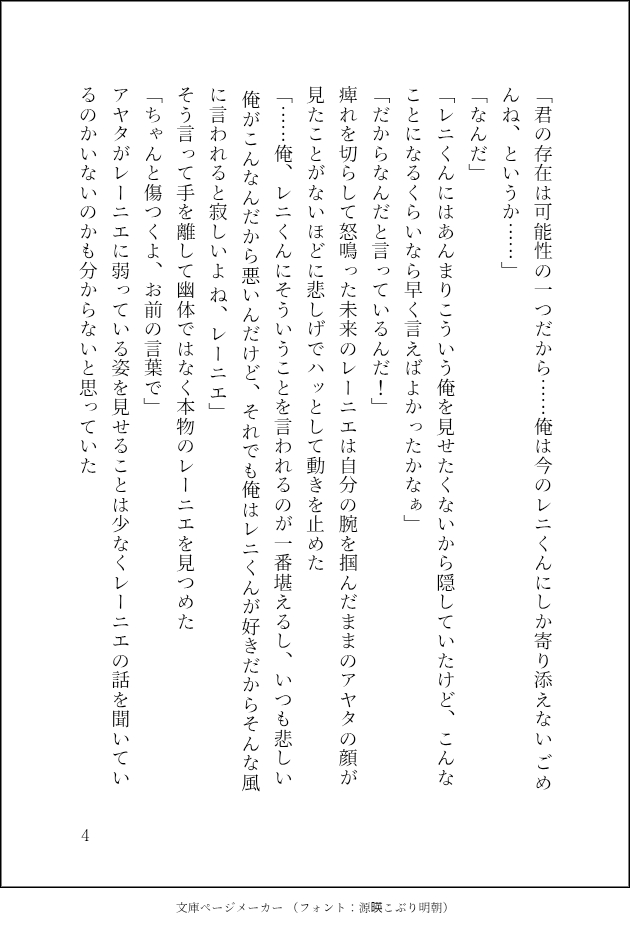 「君の存在は可能性の一つだから……俺は今のレニくんにしか寄り添えない ごめ
んね、というか……」
「なんだ」
「レニくんにはあんまりこういう俺を見せたくないから隠していたけど、こんな
ことになるくらいなら早く言えばよかったかなぁ」
「だからなんだと言っているんだ！」
痺れを切らして怒鳴った未来のレーニエは自分の腕を掴んだままのアヤタの顔が
見たことがないほどに悲しげでハッとして動きを止めた
「……俺、レニくんにそういうことを言われるのが一番堪えるし、いつも悲しい
俺がこんなんだから悪いんだけど、それでも俺はレニくんが好きだからそんな風
に言われると寂しいよ ね、レーニエ」
そう言って手を離して幽体ではなく本物のレーニエを見つめた
「ちゃんと傷つくよ、お前の言葉で」
アヤタがレーニエに弱っている姿を見せることは少なくレーニエの話を聞いてい
るのかいないのかも分からないと思っていた
4
文庫ページメーカー （フォント：源暎こぶり明朝）